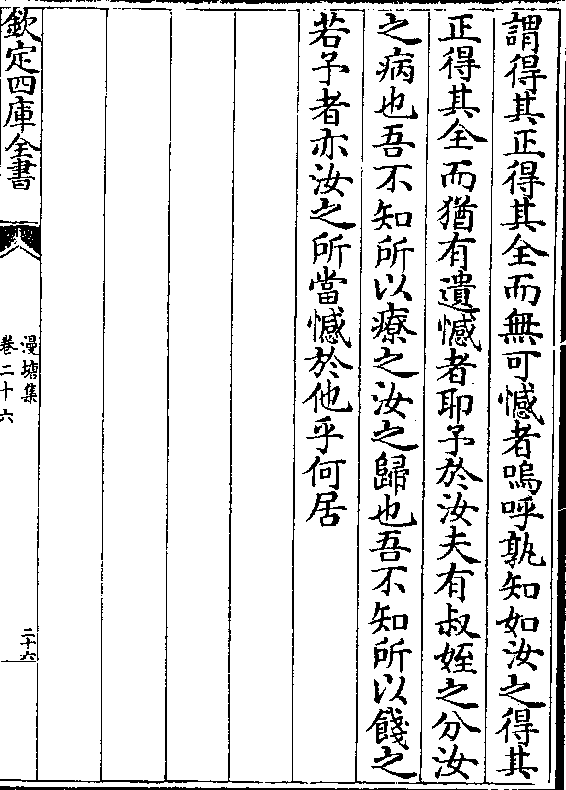 謂得其正得其全而無可憾者嗚呼孰知如汝之得其
正得其全而猶有遺憾者耶予於汝夫有叔姪之分汝
之病也吾不知所以療之汝之歸也吾不知所以餞之
若予者亦汝之所當憾於他乎何居
欽定四庫全書
漫塘集
卷二十六
二十六